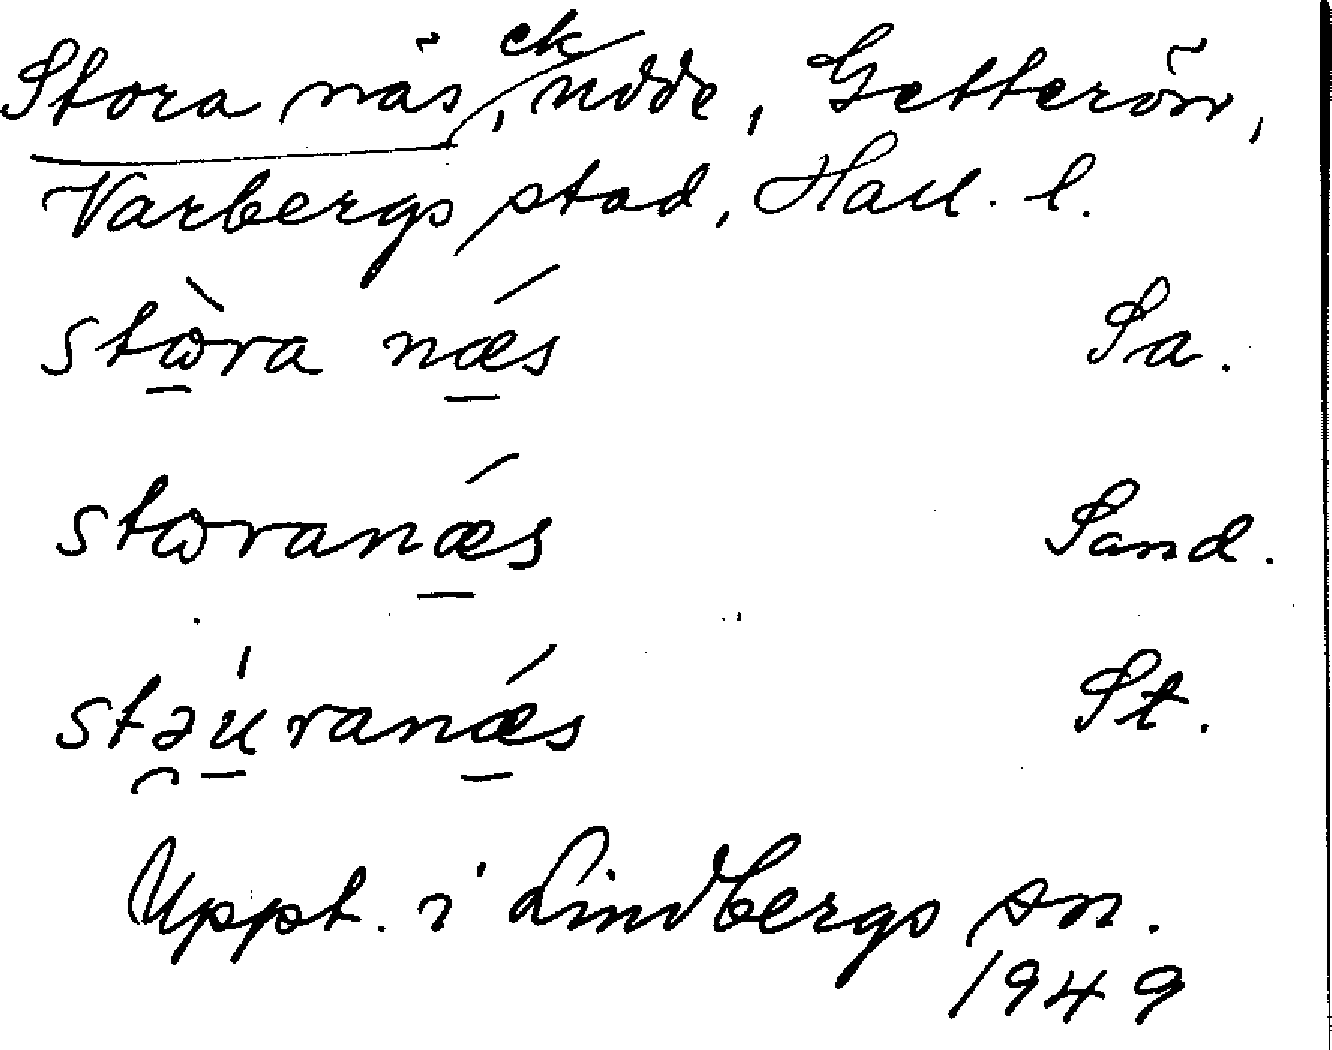 Stora näs, ek udde, Getterön,
Varbergs stad, Hall. l.
stɷ̀ra næ´s Sa.
stɷranæ´s Sand.
stəúranæ´s St.
Uppt. i Lindbergs sn.
1949